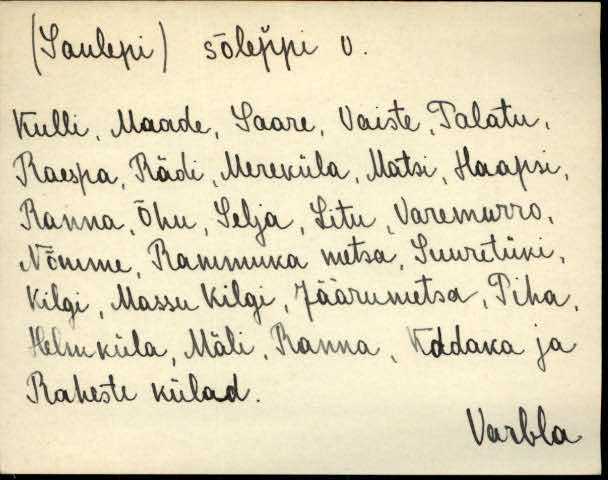 (Saulepi) sõleppi v.
Kulli, Maade, Saare, Vaiste, Palatu,
Raespa, Rädi, Mereküla, Matsi, Haapsi,
Ranna, Õhu, Selja, Situ, Varemurro,
Nõmme, Rammuka metsa, Suuretüki,
Kilgi, Massu Kilgi, Jäärumetsa, Piha,
Helmküla, Mäli, Ranna, Koddaka ja
Raheste külad.
Varbla